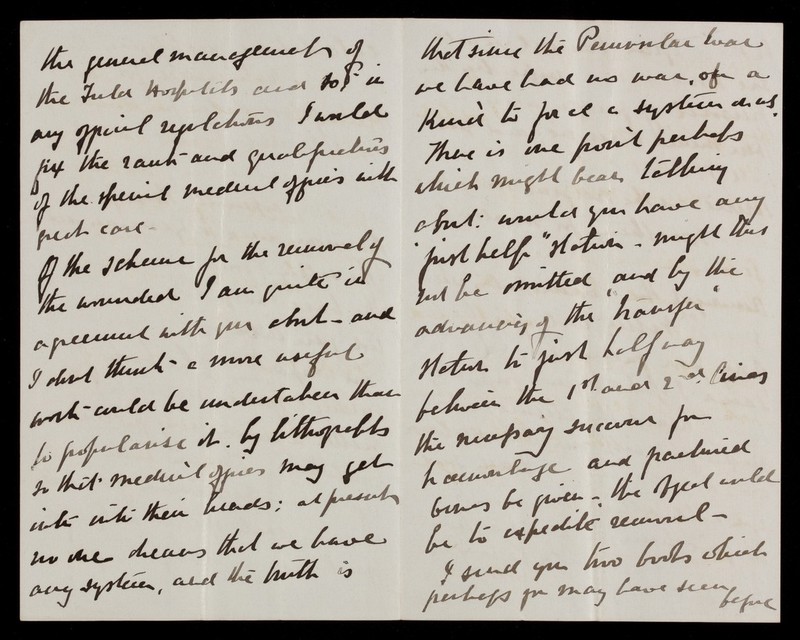 the general management of
the Field Hospitals and so in
any official regulations I would
fix the rank and qualifications
of the special medical officers with
great care -
Of the scheme for the removal of
the wounded I am quite in
agreement with you about - and
I don't think a more useful
work could be undertaken than
to popularise it. by lithographs
so that medical officers may get
into their heads; at present
no one dreams that we have
any system, and the truth is
that since the Peninsular War
we have had no war, of a
kind to force a system on us.
There is one point perhaps
which might bear talking
about: would you have any
"first help" station - might this
not be omitted and by the
advancing of the "transfer"
station to just half way
between the 1st and 2nd lines
the necessary succour for
haemorrhage and fractured
bones be given - the object would
be to expedite removal -
I send you two books which
perhaps you may have seen
before